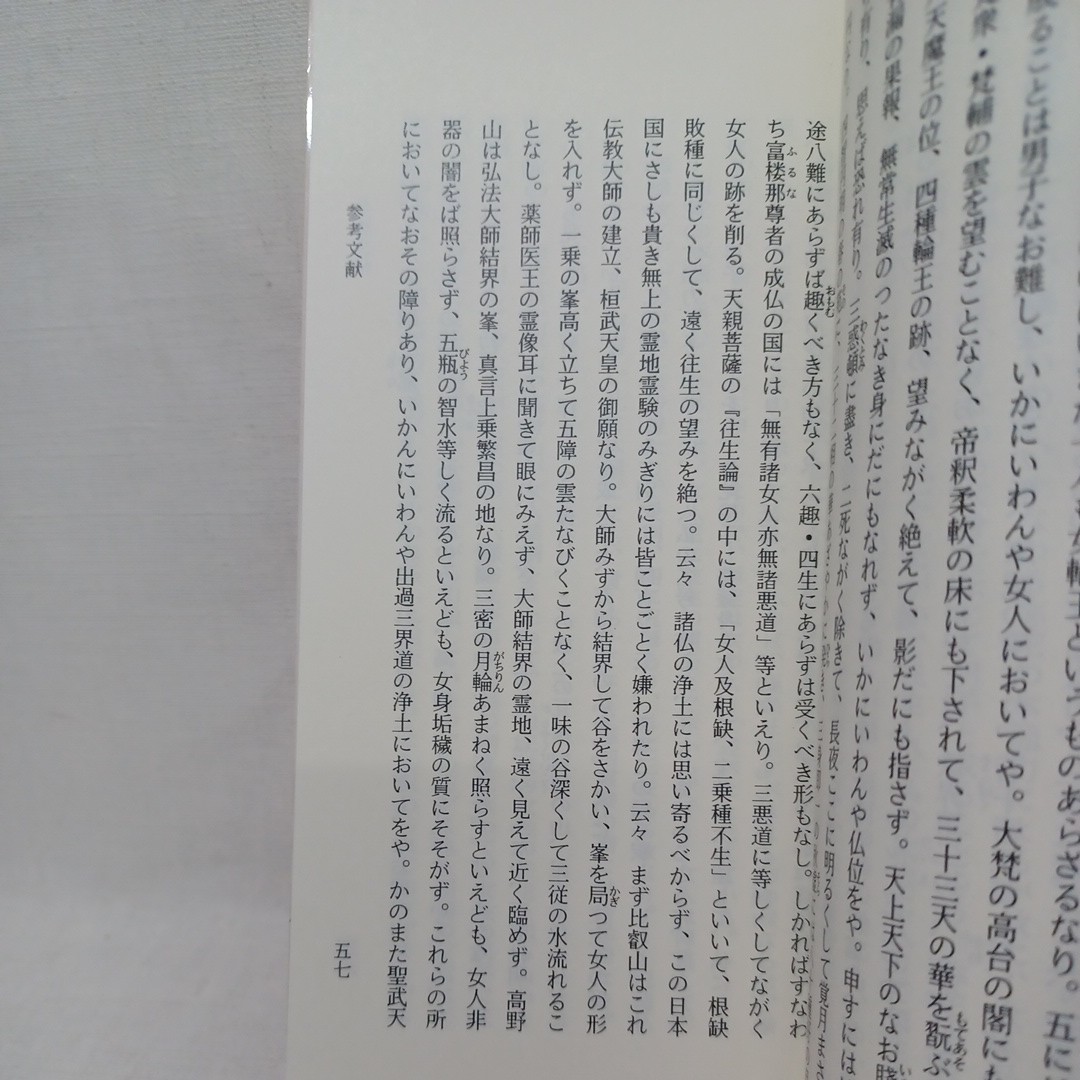 ることは男子なお難し、いかにいわんや女人においてや。大梵の高台の閣に
衆・梵輔の雲を望むことなく、帝釈柔軟の床にも下されて、三十三天の華を翫ぶ
天魔王の位、四種輪王の跡、望みながく絶えて、影だにも指さず。天上天下のなお賤
の果報、無常生滅のつたなき身にだにもなれず、いかにいわんや仏位をや。申すには
有り、思えば恐れ有り。三惑頓に盡き、二死ながく除きて、長夜ここに明るくして覚月
途八難にあらずば趣くべき方もなく、六趣・四生にあらずは受くべき形もなし。しかればすなわ
ち富楼那尊者の成仏の国には「無有諸女人亦無諸悪道」等といえり。三悪道に等しくしてながく
女人の跡を削る。天親菩薩の『往生論』の中には、「女人及根缺、二乗種不生」といいて、根缺
敗種に同じくして、遠く往生の望みを絶つ。云々 諸仏の浄土には思い寄るべからず、この日本
国にさしも貴き無上の霊地霊験のみぎりには皆ことごとく嫌われたり。云々 まず比叡山はこれ
伝教大師の建立、桓武天皇の御願なり。大師みずから結界して谷をさかい、峯を局つて女人の形
を入れず。一乗の峯高く立ちて五障の雲たなびくことなく、一味の谷深くして三従の水流れるこ
となし。薬師医王の霊像耳に聞きて眼にみえず、大師結界の霊地、遠く見えて近く臨めず。高野
山は弘法大師結界の峯、真言上乗繁昌の地なり。三密の月輪あまねく照らすといえども、女人非
器の闇をば照らさず、五瓶の智水等しく流るといえども、女身垢穢の質にそそがず。これらの所
においてなおその障りあり、いかんにいわんや出過三界道の浄土においてをや。かのまた聖武天
参考文献
五七